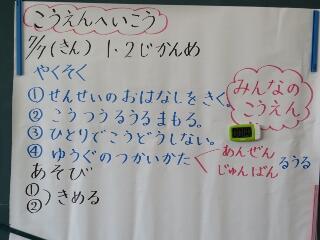 こうえんへいこう
7/7(きん) 1・2じかんめ
やくそく
①せんせいのおはなしをきく。
②こうつうるうるまもる。
③ひとりでこうどうしない。
④ゆうぐのつかいかた
あんぜん
じゅんばん
るうる
みんなの
こうえん
あそび
①
②
きめる